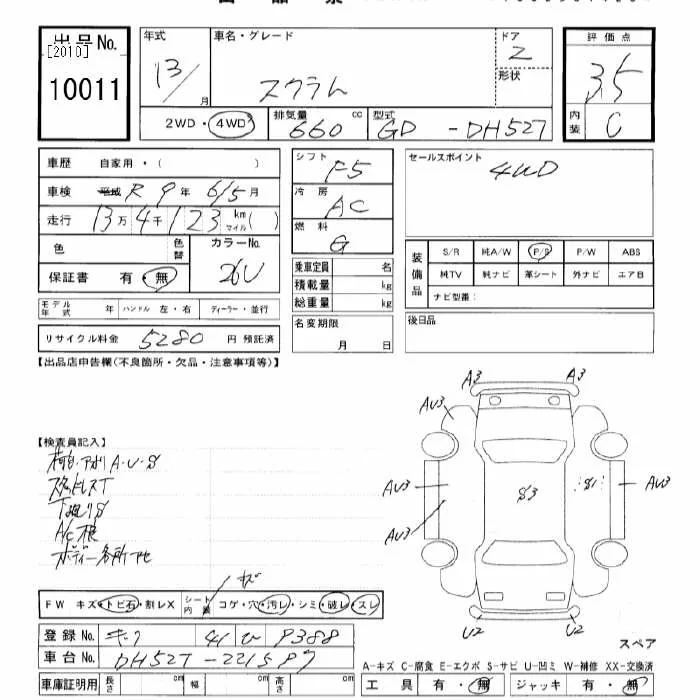 出品No.
[2010]
10011
年式
13/
月
車名・グレード
スクラム
ドア
2
形状
評価点
3.5
内装
C
2WD・4WD
排気量
660
cc
型式
GD - DH52T
車歴 自家用・( )
車検 R9年 6/5月
走行 13万4千123 km マイル( )
色
色替
カラーNo.
26U
保証書 有・無
シフト
F5
冷房
AC
燃料
G
乗車定員 名
積載量 kg
総重量 kg
セールスポイント
4WD
装備品
S/R 純A/W P/S P/W ABS
純TV 純ナビ 革シート 外ナビ エアB
ナビ型番:
モデル年式 年 ハンドル 左・右 ディーラー・並行
名変期限
月 日
後日品
リサイクル料金 5280 円 預託済
【出品店申告欄(不良箇所・欠品・注意事項等)】
A3 A3
AU3
【検査員記入】
A・U・S
AU3 S3 S1 AU3
AU3
A/C
ボディー各所
FW キズ・トビ石・割レX
シート内張
コゲ・穴・汚レ・シミ・破レ・スレ
キズ
登録No. 41 ひ 9388
車台No. DH52T-221587
U2 U2
スペア
A-キズ C-腐食 E-エクボ S-サビ U-凹ミ W-補修 XX-交換済
車庫証明用 長さ cm 幅 cm 高さ cm
工具 有・無 ジャッキ 有・無